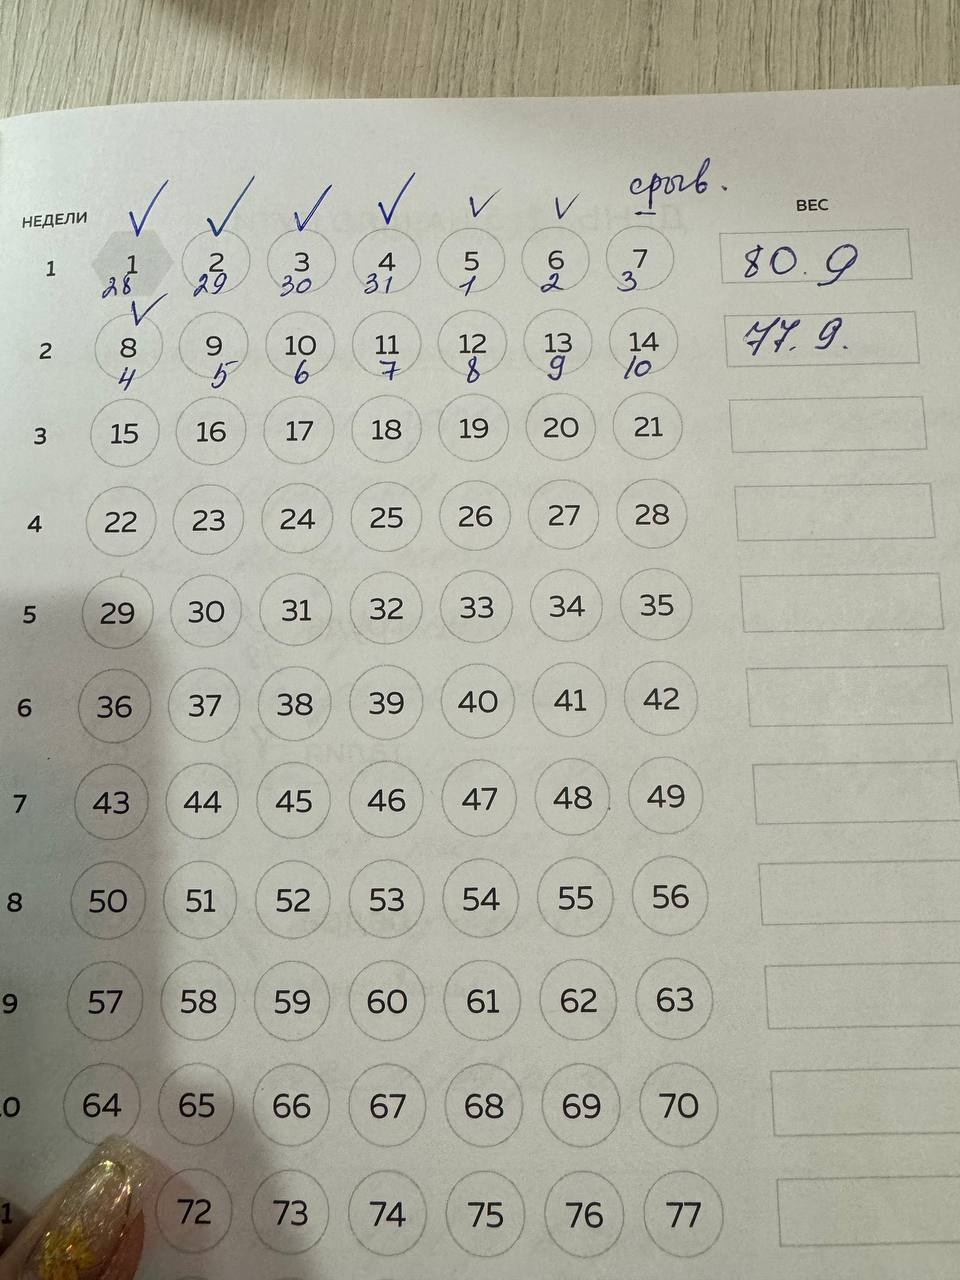 срыв.
НЕДЕЛИ ВЕС
1 1 2 3 4 5 6 7 80.9
28 29 30 31 1 2 3
2 8 9 10 11 12 13 14 77.9.
4 5 6 7 8 9 10
3 15 16 17 18 19 20 21
4 22 23 24 25 26 27 28
5 29 30 31 32 33 34 35
6 36 37 38 39 40 41 42
7 43 44 45 46 47 48 49
8 50 51 52 53 54 55 56
9 57 58 59 60 61 62 63
0 64 65 66 67 68 69 70
1 72 73 74 75 76 77